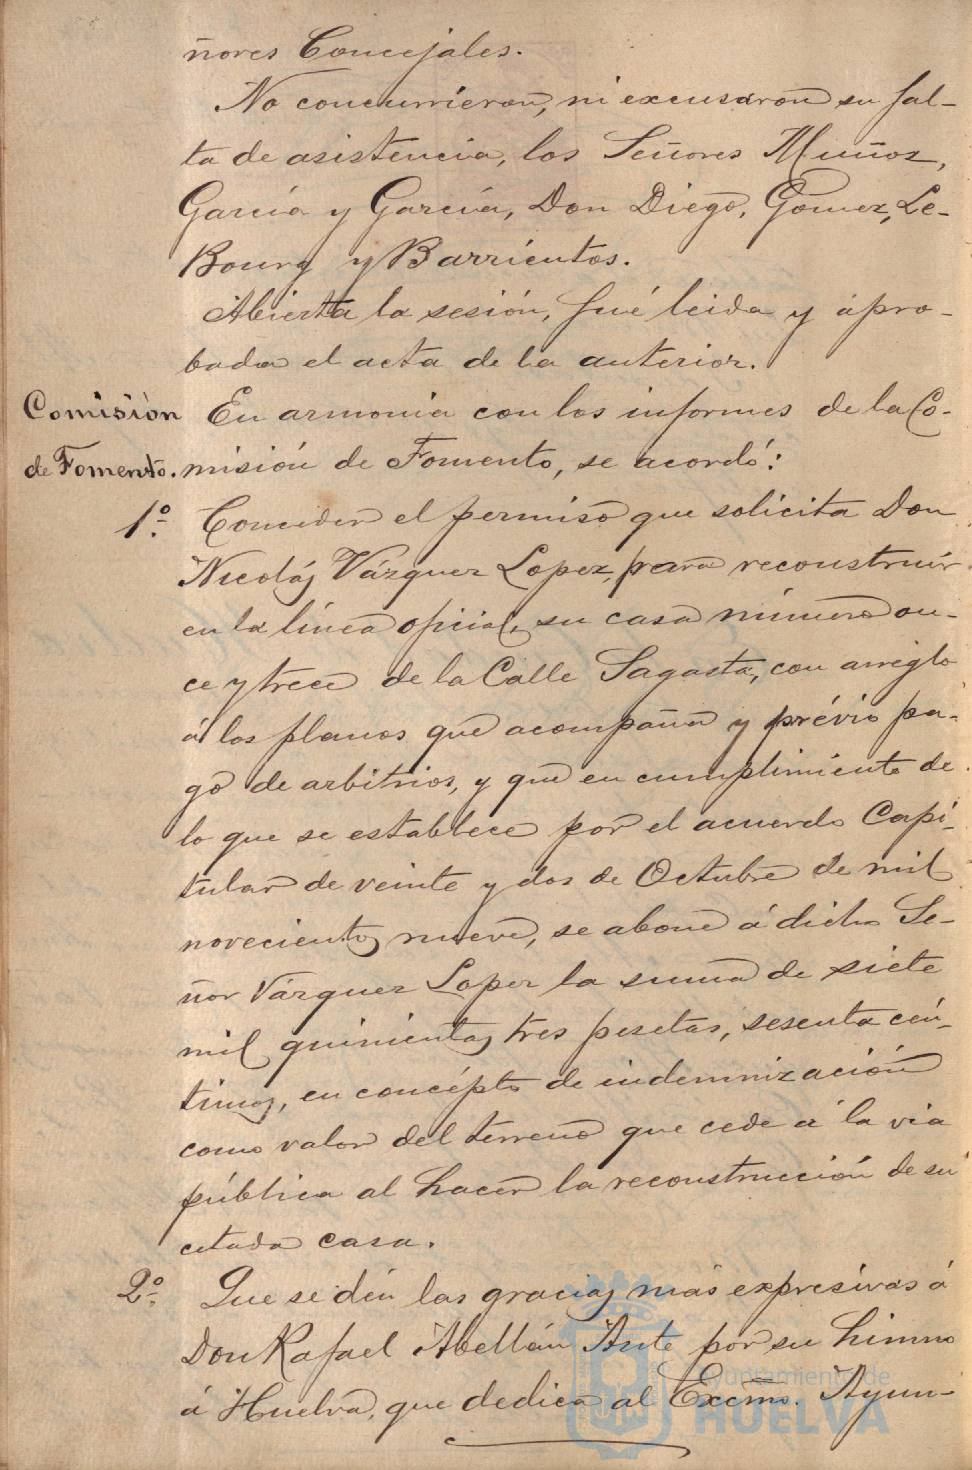 ñores Concejales.
No concurrieron, ni excusaron su fal-
ta de asistencia, los Señores Muñoz,
García y García, Don Diego, Gomez, Le-
Bourg y Barrientos.
Abierta la sesión, fué leida y apro-
bada el acta de la anterior.
Comisión
de Fomento.
En armonia con los informes de la Co-
misión de Fomento, se acordó:
1º Conceder el permiso que solicita Don
Nicolás Vázquez Lopez, para reconstruir
en la línea oficial, su casa número on-
ce y trece de la Calle Sagasta, con arreglo
á los planos que acompaña y prévio pa-
go de arbitrios, y que en cumplimiento de
lo que se establece por el acuerdo Capi-
tular de veinte y dos de Octubre de mil
novecientos nueve, se abone á dicho Se-
ñor Vázquez Lopez la suma de siete
mil quinientas tres pesetas, sesenta cén-
timos, en concépto de indemnización
como valor del terreno que cede á la via
pública al hacer la reconstrucción de su
citada casa.
2º Que se dén las gracias más expresivas á
Don Rafael Abellán Ante por su himno
á Huelva, que dedica al Excmo. Ayun-
Ayuntamiento de
HUELVA